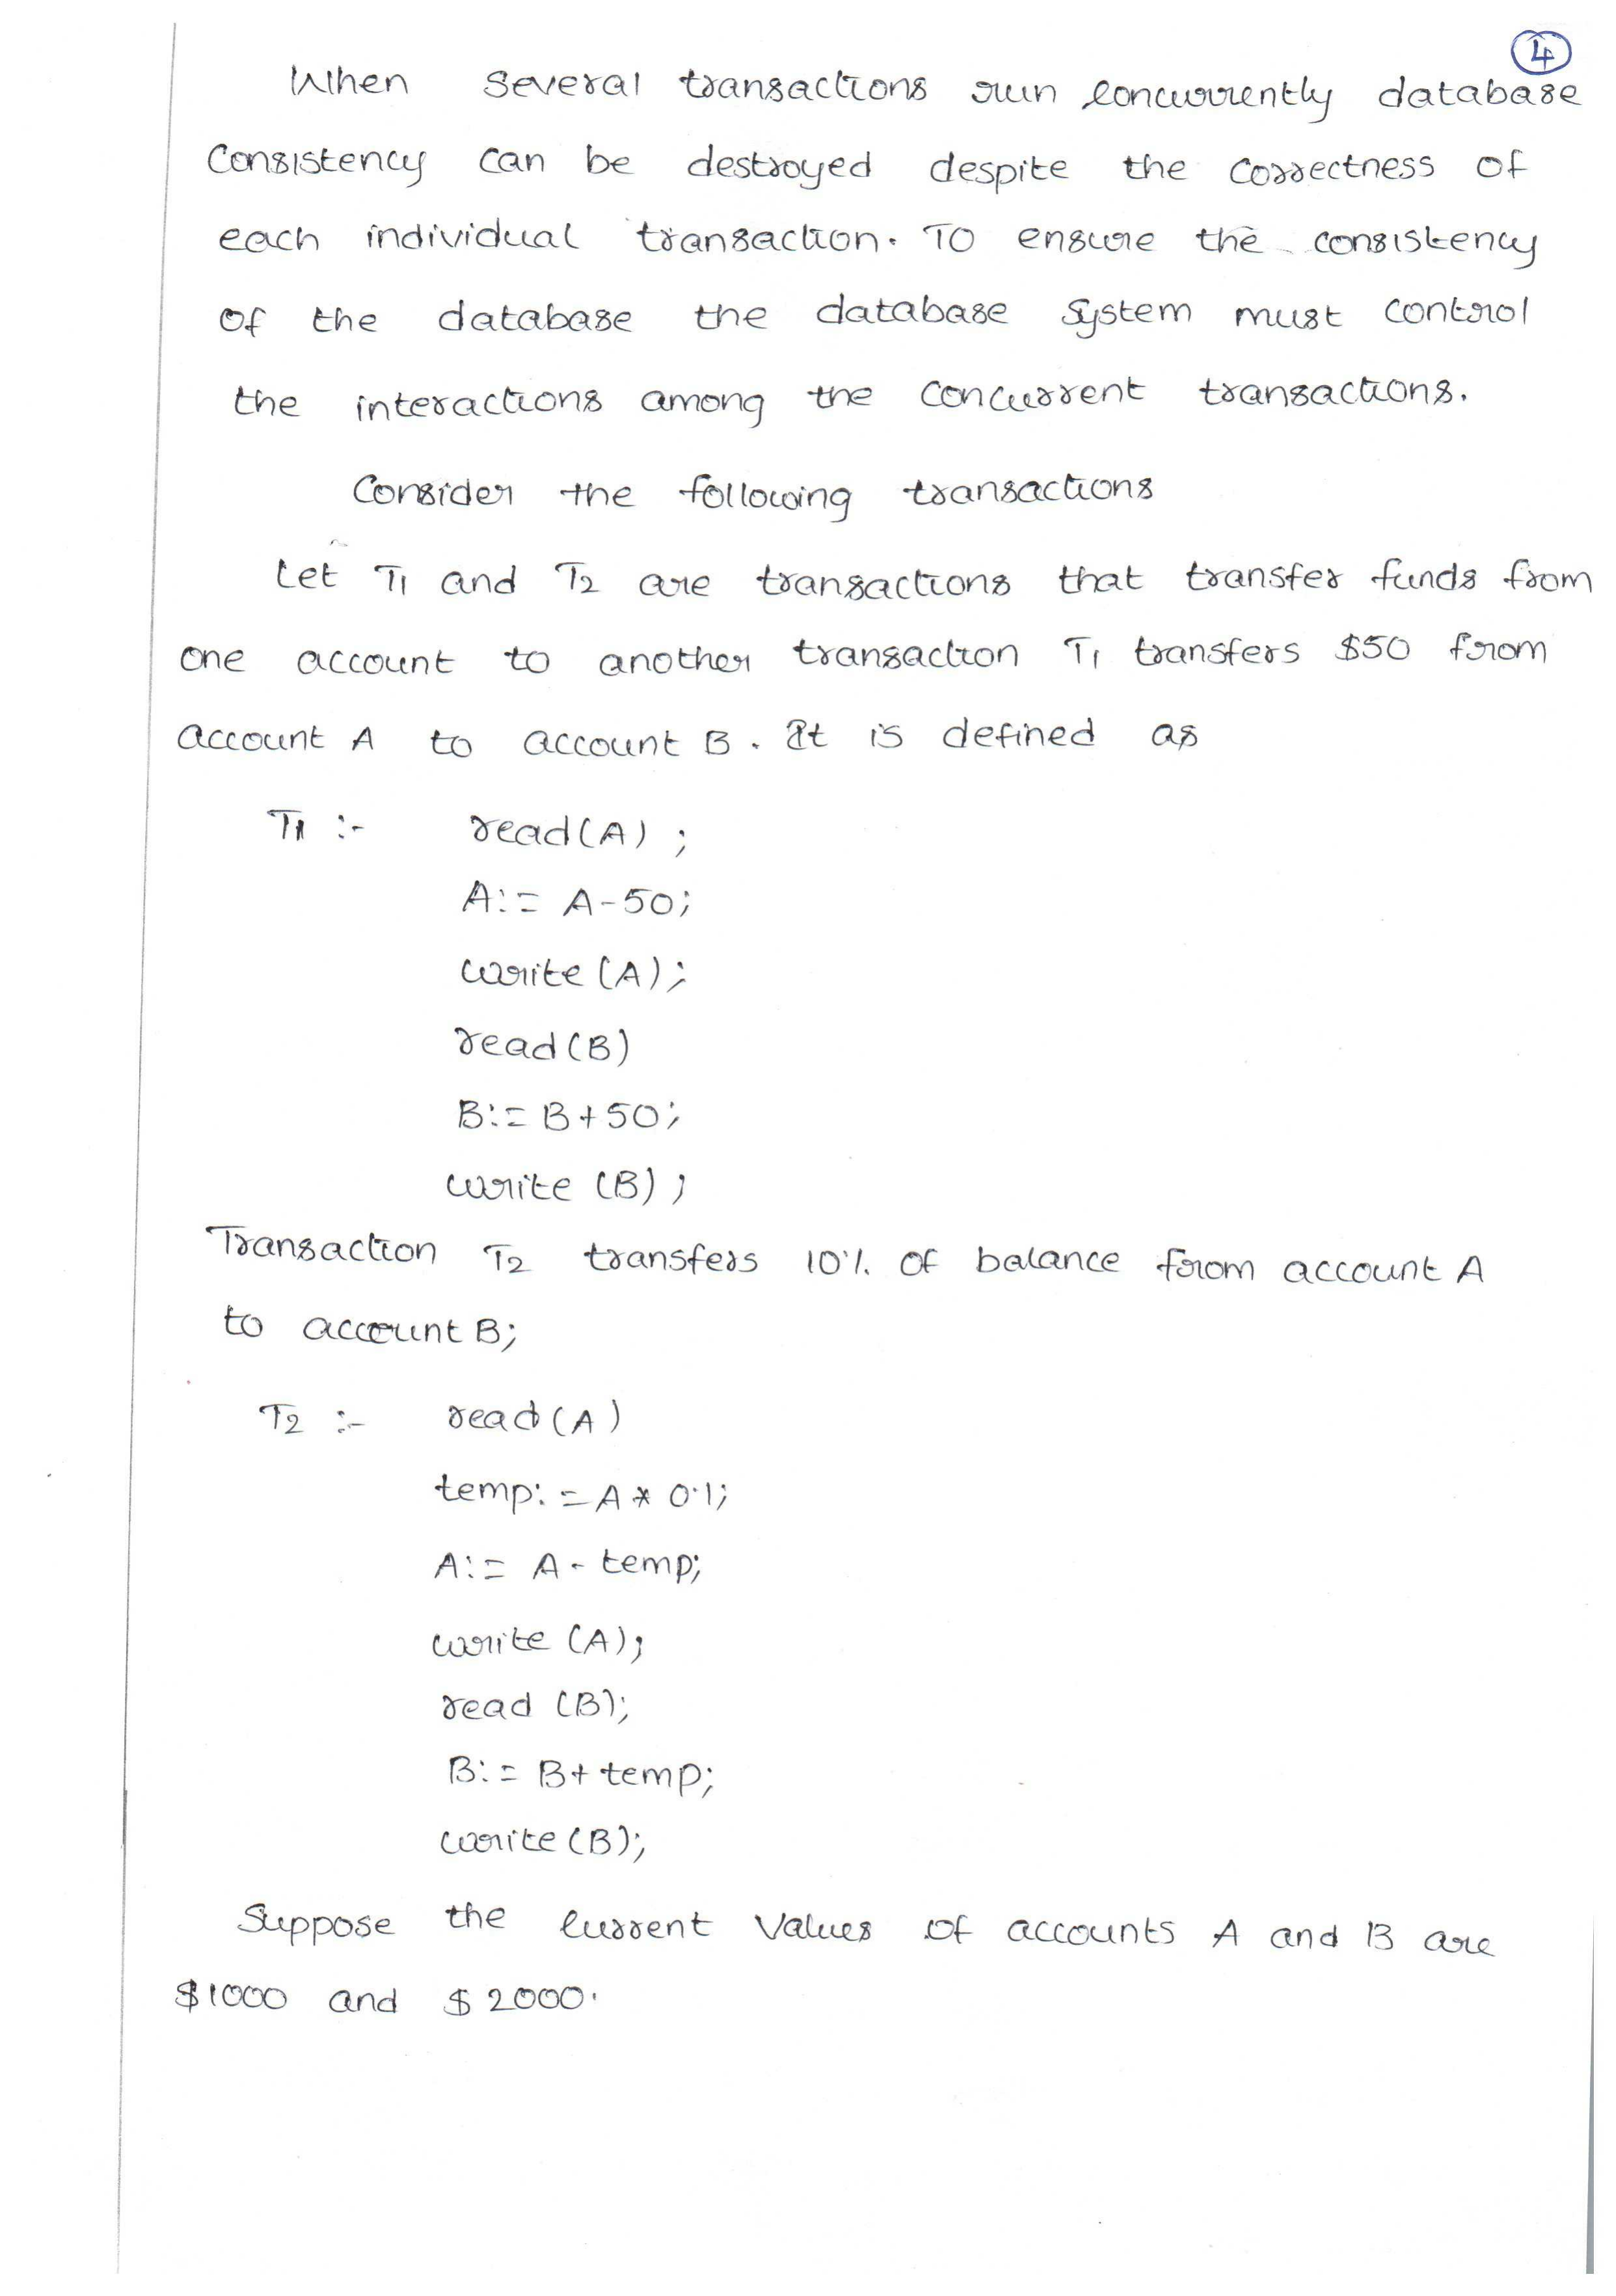 4
When several transactions run concurrently database
Consistency can be destroyed despite the correctness of
each individual transaction. To ensure the consistency
of the database the database System must control
the interactions among the concurrent transactions.
Consider the following transactions
Let T1 and T2 are transactions that transfer funds from
one account to another transaction T1 transfers $50 from
account A to account B. It is defined as
T1 :- read(A);
A:= A-50;
write (A);
read(B)
B:= B+50;
write (B);
Transaction T2 transfers 10% of balance from account A
to account B;
T2 :- read(A)
temp:=A * 0.1;
A:= A - temp;
write (A);
read (B);
B:= B+ temp;
write (B);
Suppose the current values of accounts A and B are
$1000 and $2000.